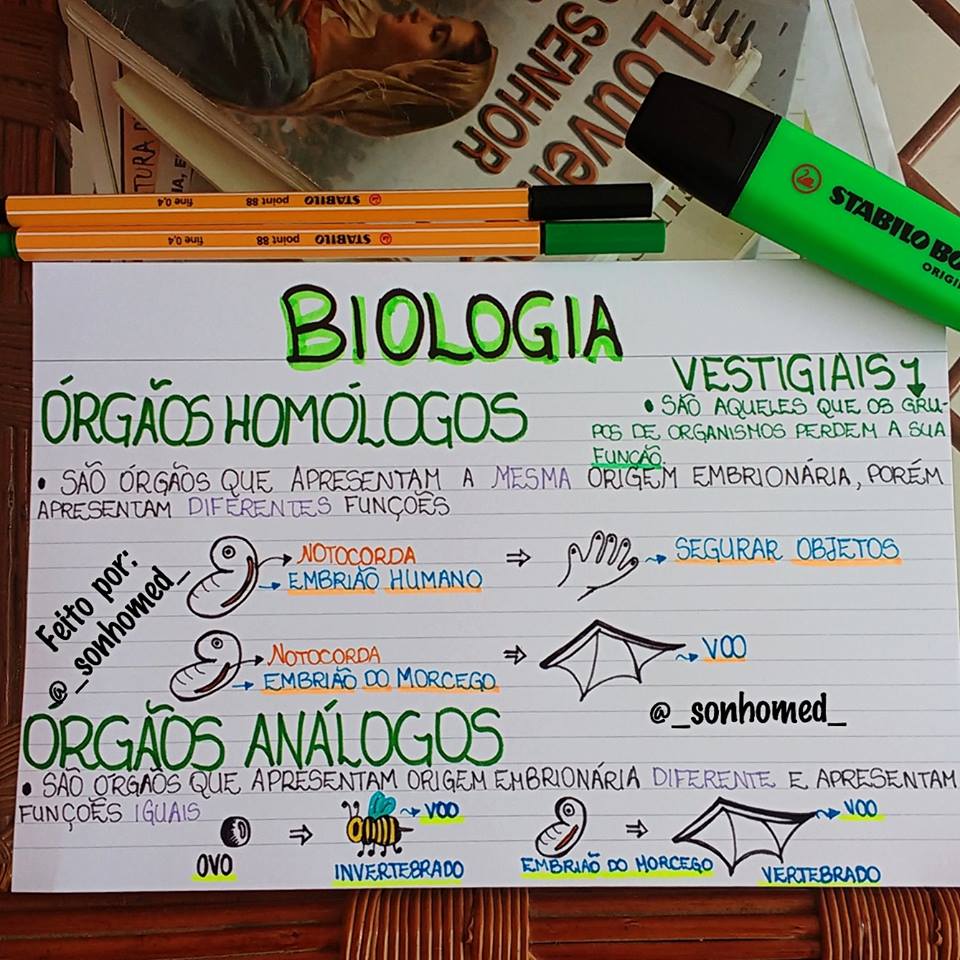 Louve
SENHOR
STABILO point 88 fine 0,4
STABILO point 88 fine 0,4
STABILO BO
ORIGI
BIOLOGIA
VESTIGIAIS
• SÃO AQUELES QUE OS GRU-
POS DE ORGANISMOS PERDEM A SUA
FUNÇÃO.
ÓRGÃOS HOMÓLOGOS
• SÃO ÓRGÃOS QUE APRESENTAM A MESMA ORIGEM EMBRIONÁRIA, PORÉM
APRESENTAM DIFERENTES FUNÇÕES
NOTOCORDA
EMBRIÃO HUMANO
SEGURAR OBJETOS
Feito por:
@_sonhomed_
NOTOCORDA
EMBRIÃO DO MORCEGO
VOO
@_sonhomed_
ÓRGÃOS ANÁLOGOS
• SÃO ÓRGÃOS QUE APRESENTAM ORIGEM EMBRIONÁRIA DIFERENTE E APRESENTAM
FUNÇÕES IGUAIS
OVO
VOO
INVERTEBRADO
EMBRIÃO DO MORCEGO
VOO
VERTEBRADO